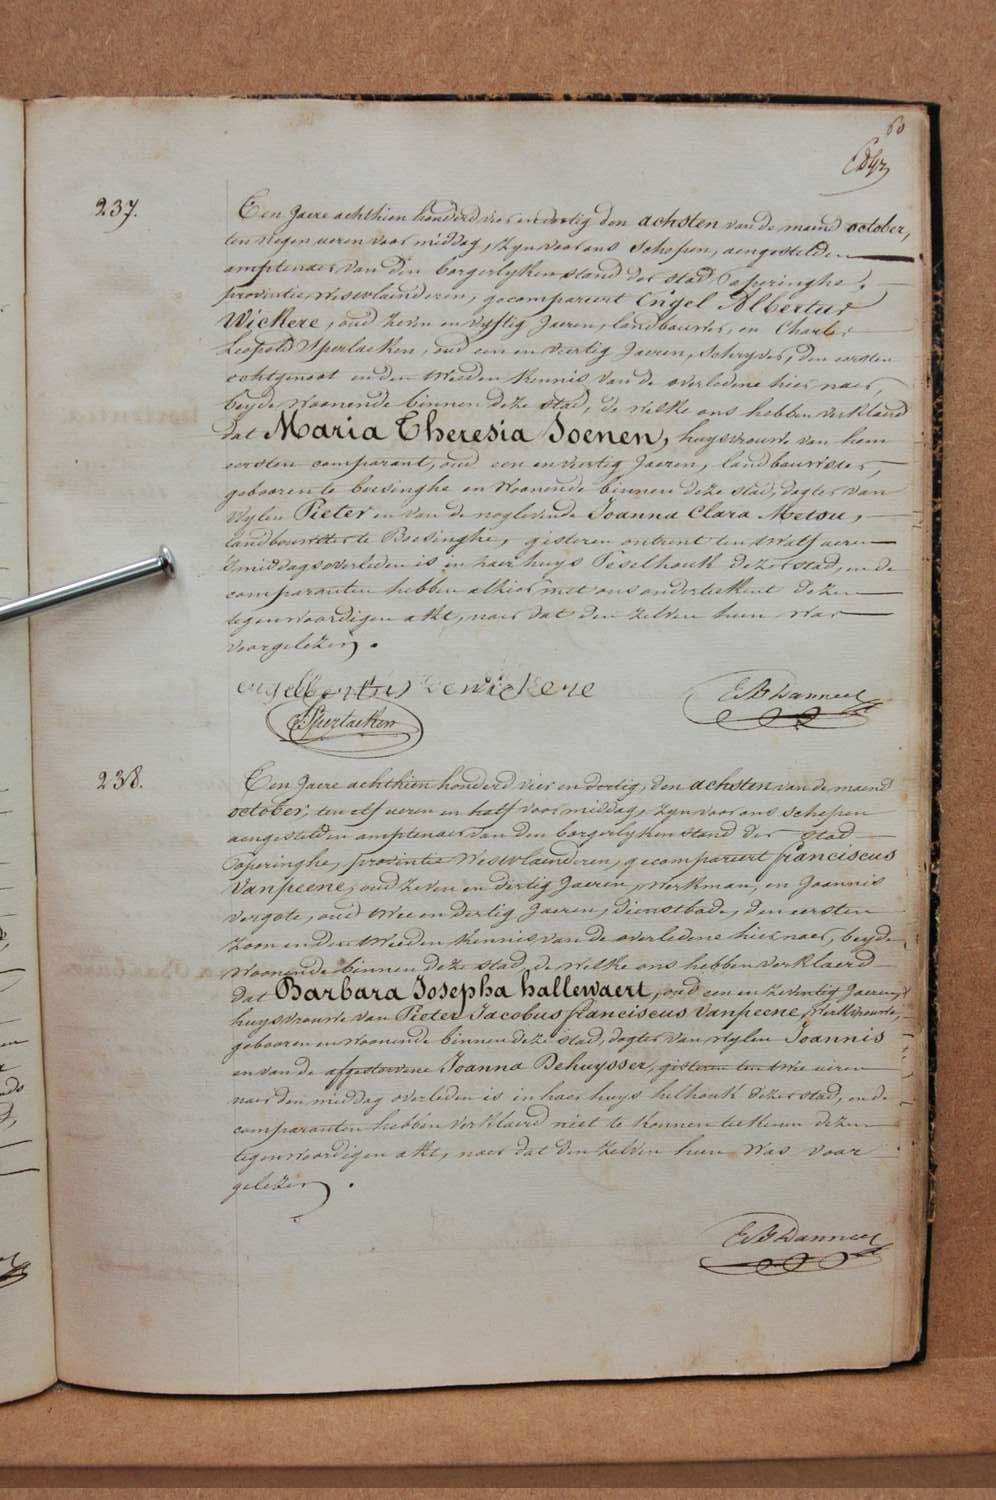 60
237.
Een Jaere achthien honderd vier en dertig den achsten van de maend october,
ten negen ueren voor middag, zyn voor ons Schepen, aengestelden
amptenaer van den borgerlyken stand der stad Poperinghe,
provintie Westvlaenderen, gecompareert Engel Albertus
Wickere, oud zeven en vyftig Jaeren, landbouwer, en Charles
Leopold Sperlaeken, oud een en veertig Jaeren, Schryver, den eersten
echtgenoot en den tweeden kennis van de overledene hier naer,
beyde woonende binnen deze stad, de welke ons hebben verklaerd
dat Maria Theresia Soenen, huysvrouwe van hem
eersten comparant, oud een en veertig Jaeren, landbouwster,
gebooren te boesinghe en woonende binnen deze stad, dogter van
wylen Pieter en van de noglevende Joanna Clara Metsu,
landbouwster te Boesinghe, gisteren ontrent ten twalf ueren
smiddags overleden is in haer huys Peselhouk dezer stad, en de
comparanten hebben alhier met ons onderteekent dezen
tegenwoordigen akt, naer dat den zelven hun was
voorgelezen.
engelbertus Dewickere
Sperlaeken
238.
Een Jaere achthien honderd vier en dertig, den achsten van de maend
october, ten elf ueren en half voor middag, zyn voor ons schepen
aengestelden amptenaer van den borgerlyken stand der stad
Poperinghe, provintie Westvlaenderen, gecompareert franciscus
Vanpeene, oud zeven en dertig Jaeren, werkman, en Joannis
Vergote, oud twee en dertig Jaeren, dienstbode, den eersten
zoon en den tweeden kennis van de overledene hier naer, beyde
woonende binnen deze stad, de welke ons hebben verklaerd
dat Barbara Josepha hallewaert, oud een en zeventig Jaeren,
huysvrouwe van Pieter Jacobus franciscus Vanpeene, werkvrouwe,
gebooren en woonende binnen deze stad, dogter van wylen Joannis
en van de afgestorvene Joanna Dehuysser, gisteren ten twee ueren
naer den middag overleden is in haer huys helhouk dezer stad, en de
comparanten hebben verklaerd niet te konnen teekenen dezen
tegenwoordigen akt, naer dat den zelven hun was voor
gelezen.